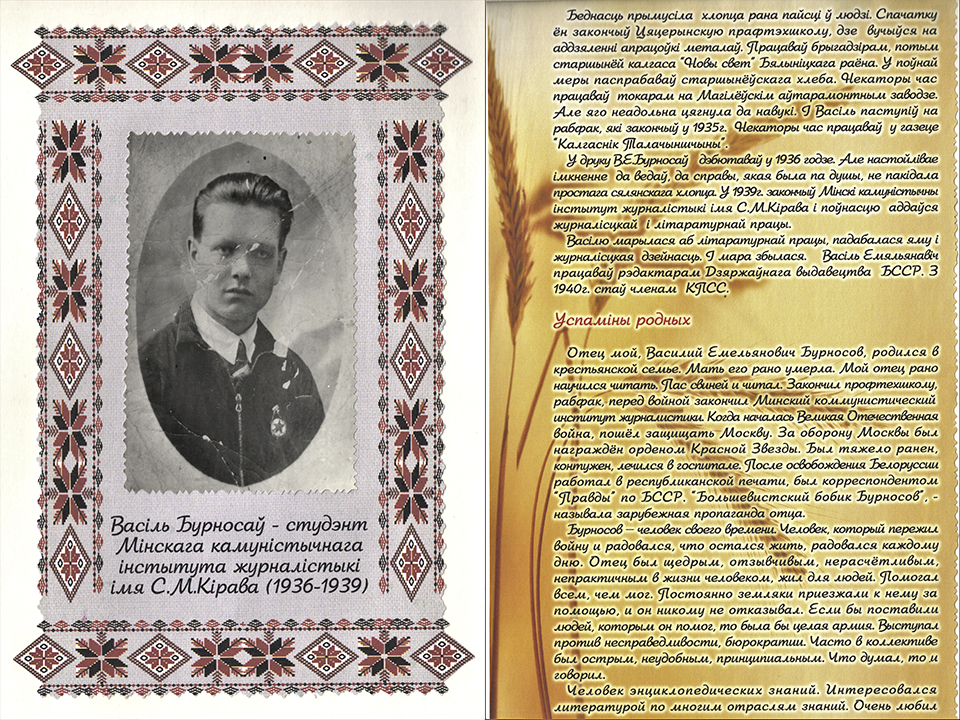 Васіль Бурносаў - студэнт
Мінскага камуністычнага
інстытута журналістыкі
імя С.М.Кірава (1936-1939)
Беднасць прымусіла хлопца рана пайсці ў людзі. Спачатку
ён закончыў Цяцерынскую прафтэхшколу, дзе вучыўся на
аддзяленні апрацоўкі металаў. Працаваў брыгадзірам, потым
старшынёй калгаса "Новы свет" Бялыніцкага раёна. У поўнай
меры паспрабаваў старшынёўскага хлеба. Некаторы час
працаваў токарам на Магілёўскім аўтарамонтным заводзе.
Але яго неадольна цягнула да навукі. І Васіль паступіў на
рабфак, які закончыў у 1935г. Некаторы час працаваў у газеце
"Калгаснік Талачыншчыны".
У друку В.Е.Бурносаў дэбютаваў у 1936 годзе. Але настойлівае
імкненне да ведаў, да справы, якая была па душы, не пакідала
простага сялянскага хлопца. У 1939г. закончыў Мінскі камуністычны
інстытут журналістыкі імя С.М.Кірава і поўнасцю аддаўся
журналісцкай і літаратурнай працы.
Васілю марылася аб літаратурнай працы, падабалася яму і
журналісцкая дзейнасць. І мара збылася. Васіль Емяльянавіч
працаваў рэдактарам Дзяржаўнага выдавецтва БССР. З
1940г. стаў членам КПСС.
Успаміны родных
Отец мой, Василий Емельянович Бурносов, родился в
крестьянской семье. Мать его рано умерла. Мой отец рано
научился читать. Пас свиней и читал. Закончил профтехшколу,
рабфак, перед войной закончил Минский коммунистический
институт журналистики. Когда началась Великая Отечественная
война, пошёл защищать Москву. За оборону Москвы был
награждён орденом Красной Звезды. Был тяжело ранен,
контужен, лечился в госпитале. После освобождения Белоруссии
работал в республиканской печати, был корреспондентом
"Правды" по БССР. "Большевистский бобик Бурносов", -
называла зарубежная пропаганда отца.
Бурносов – человек своего времени. Человек, который пережил
войну и радовался, что остался жить, радовался каждому
дню. Отец был щедрым, отзывчивым, нерасчётливым,
непрактичным в жизни человеком, жил для людей. Помогал
всем, чем мог. Постоянно земляки приезжали к нему за
помощью, и он никому не отказывал. Если бы поставили
людей, которым он помог, то была бы целая армия. Выступал
против несправедливости, бюрократии. Часто в коллективе
был острым, неудобным, принципиальным. Что думал, то и
говорил.
Человек энциклопедических знаний. Интересовался
литературой по многим отраслям знаний. Очень любил